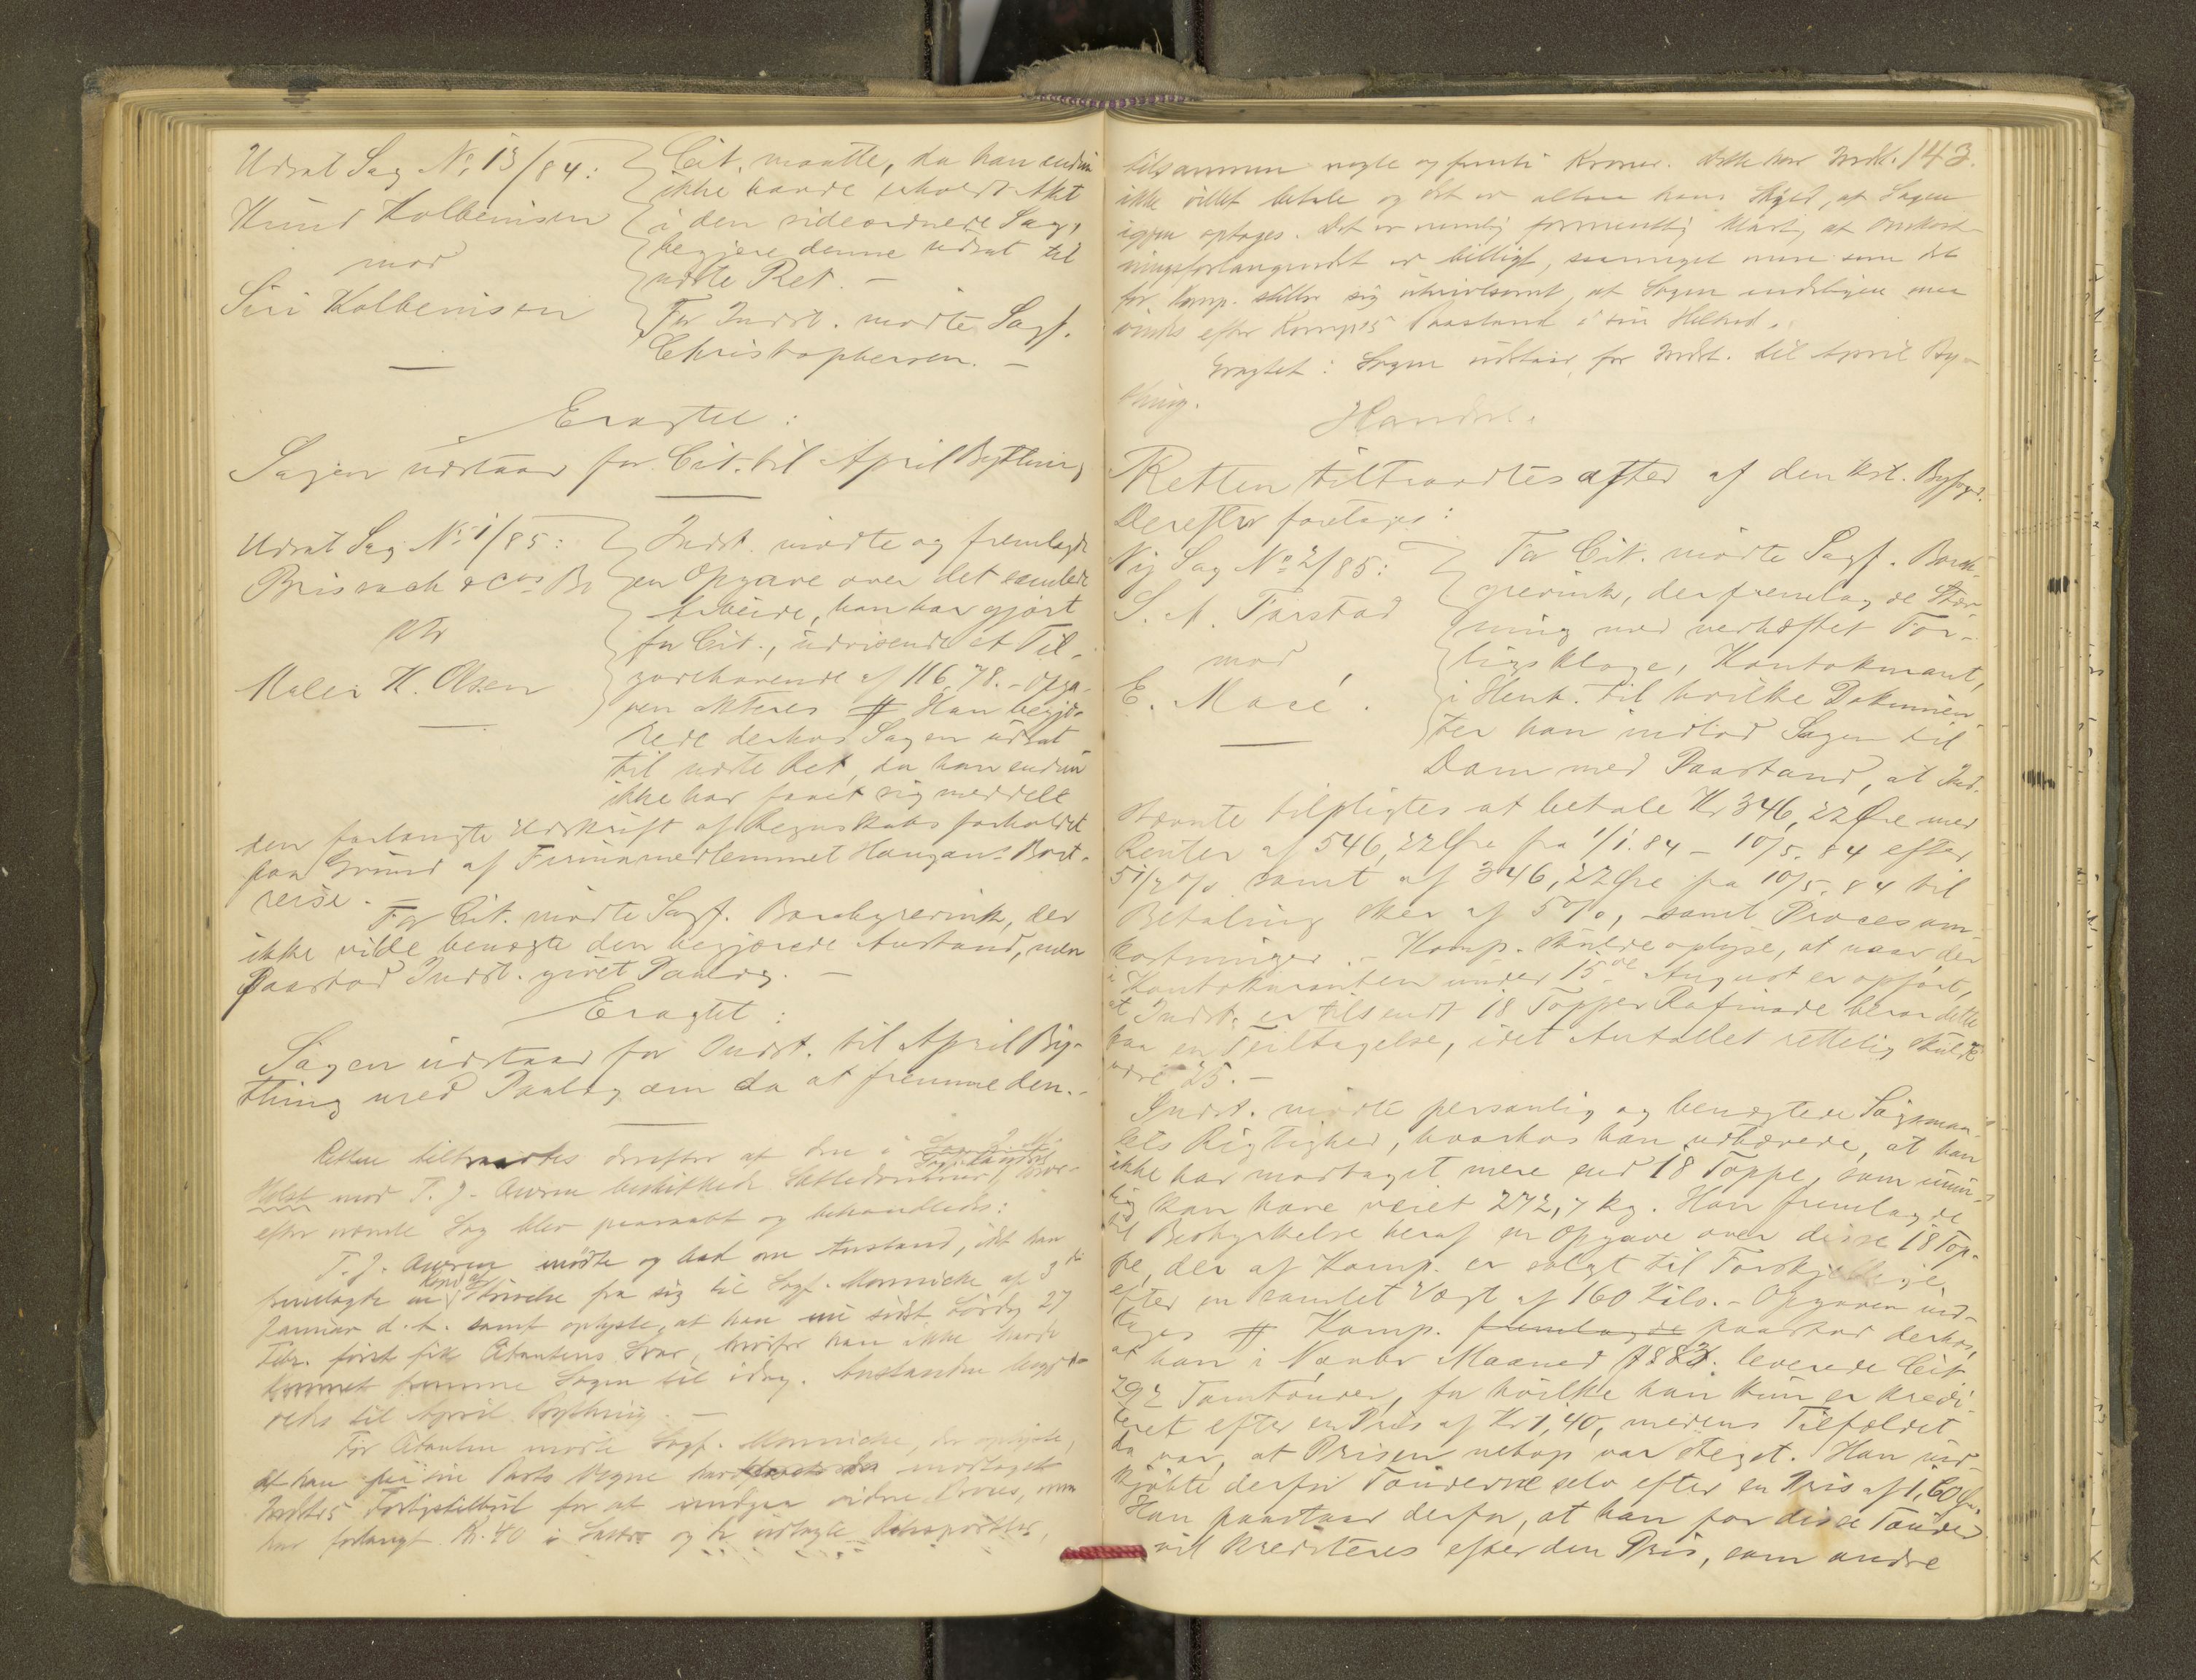 Udsat Sag No 13/84:
Knud Kolbeinsen
mod
Siri Kolbeinsen
Cit. maatte, da han endnu
ikke havde erholdt Akt
i den sideordnede Sag,
begjere denne udsat til
næste Ret. —
For Indst. mødte Sagf.
Christophersen. —
Eragtet:
Sagen udstaar for Cit. til April Bything
Udsat Sag No 1/85:
& Co's Bo
mod
Maler K. Olsen
Indst. mødte og fremlagde
en Opgave over det samlede
Arbeide, han har gjort
for Cit., udvisende et Til-
godehavende af 116,78. – Opga-
ven akteres # Han begjæ-
rede derhos Sagen udsat
til næste Ret, da han endnu
ikke har faaet sig meddelt
den forlangte Udskrift af Regnskabsforholdet
paa Grund af Firmamedlemmet Haugans Bort-
reise. —
For Cit. mødte Sagf. Borchgrevink, der
ikke vilde benægte den begjærede Anstand, men
paastod Indst. givet Paalæg. —
Eragtet:
Sagen udstaar for Indst. til April By-
thing med Paalæg om da at fremme den. –
Retten tiltraadtes derefter af den i
Holst mod T. J. Auren beskikkede Sættedommer,
efter nævnte Sag blev paaraabt og behandledes:
T. J. Auren mødte og bad om Anstand, idet han
fremlagde en Skrivelse fra sig til Sagf. Monniche af 3die
Januar d. A. samt oplyste, at han nu sidst Lørdag 27
Febr. først fik Citantens Svar, hvorfor han ikke havde
kunnet fremme Sagen til idag. Anstanden begjæ-
redes til April Bything. —
For Citanten mødte Sagf. Monniche, der oplyste,
at han paa sin Parts Vegne har modtaget
Indst's Forligstilbud for at undgaa videre Proces, men
har forlangt Kr. 40 i Salær og de udlagte
143.
tilsammen nogle og femti Kroner. Dette har Indst.
ikke villet betale og det er altsaa hans Skyld, at Sagen
igjen optages. Det er nemlig formentlig klart, at Omkost-
ningsforlangendet er billigt, saameget mere som det
for Komp. stiller sig utvivlsomt, at Sagen endeligen maa
vindes efter Komp's Paastand i sin Helhed.
Eragtet: Sagen udstaar for Indst. til April By-
thing.
Retten tiltraadtes after af den kst. Byfoged.
Derefter foretoges:
Ny Sag No 2/85:
S. A. Farstad
mod
E. Macé.
For Cit. mødte Sagf. Borch-
grevink, der fremlagde Stæv-
ning med vedhæftet For-
ligsklage, Kontokurant,
i Henh. til hvilke Dokumen-
ter han indlod Sagen til
Dom med Paastand, at Ind-
stævnte tilpligtes at betale Kr 346,22 Øre med
Renter af 546,22 Øre fra 1/1. 84 – 10/5. 84 efter
5 1/2 % samt af 346,22 Øre fra 10/5. 84 til
Betaling sker af 5 %, samt Procesom-
kostninger. – Komp. skulde oplyse, at naar der
i Kontokuranten under 15de August er opført,
at Indst. er tilsendt 18 Topper Rafinade beror dette
paa en Feiltagelse, idet Antallet rettelig skulde
være 25. —
Indst. mødte personlig og benægtede Søgsmaa-
lets Rigtighed, hvorhos han anførede, at han
ikke har modtaget mere end 18 Toppe, som umu-
lig kan have veiet 272,7 kg. Han fremlagde
til Bestyrkelse heraf en Opgave over disse 18 Top-
pe, der af Komp. er solgt til Forskjellige,
efter en samlet Vægt af 160 Kilo. – Opgaven ind-
tages # Komp. fremlagde paastod derhos,
at han i Novbr Maaned 1883. leverede Cit.
292 Tomtønder, for hvilke han kun er kredi-
teret efter en Pris af Kr 1,40, medens Tilfældet
da var, at Prisen netop var steget. Han ind-
kjøbte derfor Tønderne selv efter en Pris af 1,60 Øre.
Han paastaar derfor, at han for disse Tønder
vil krediteres efter den Pris, som andre